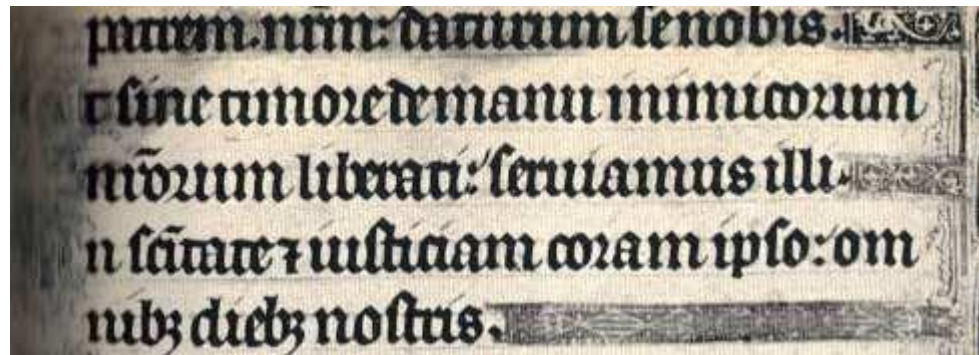 patrem.nr̄m: daturum se nobis.
t sine timore de manu inimicorum
nr̄orum liberati: seruiamus illi.
n sc̄itate ⁊ iusticiam coram ipso: om
nibꝫ diebꝫ nostris.